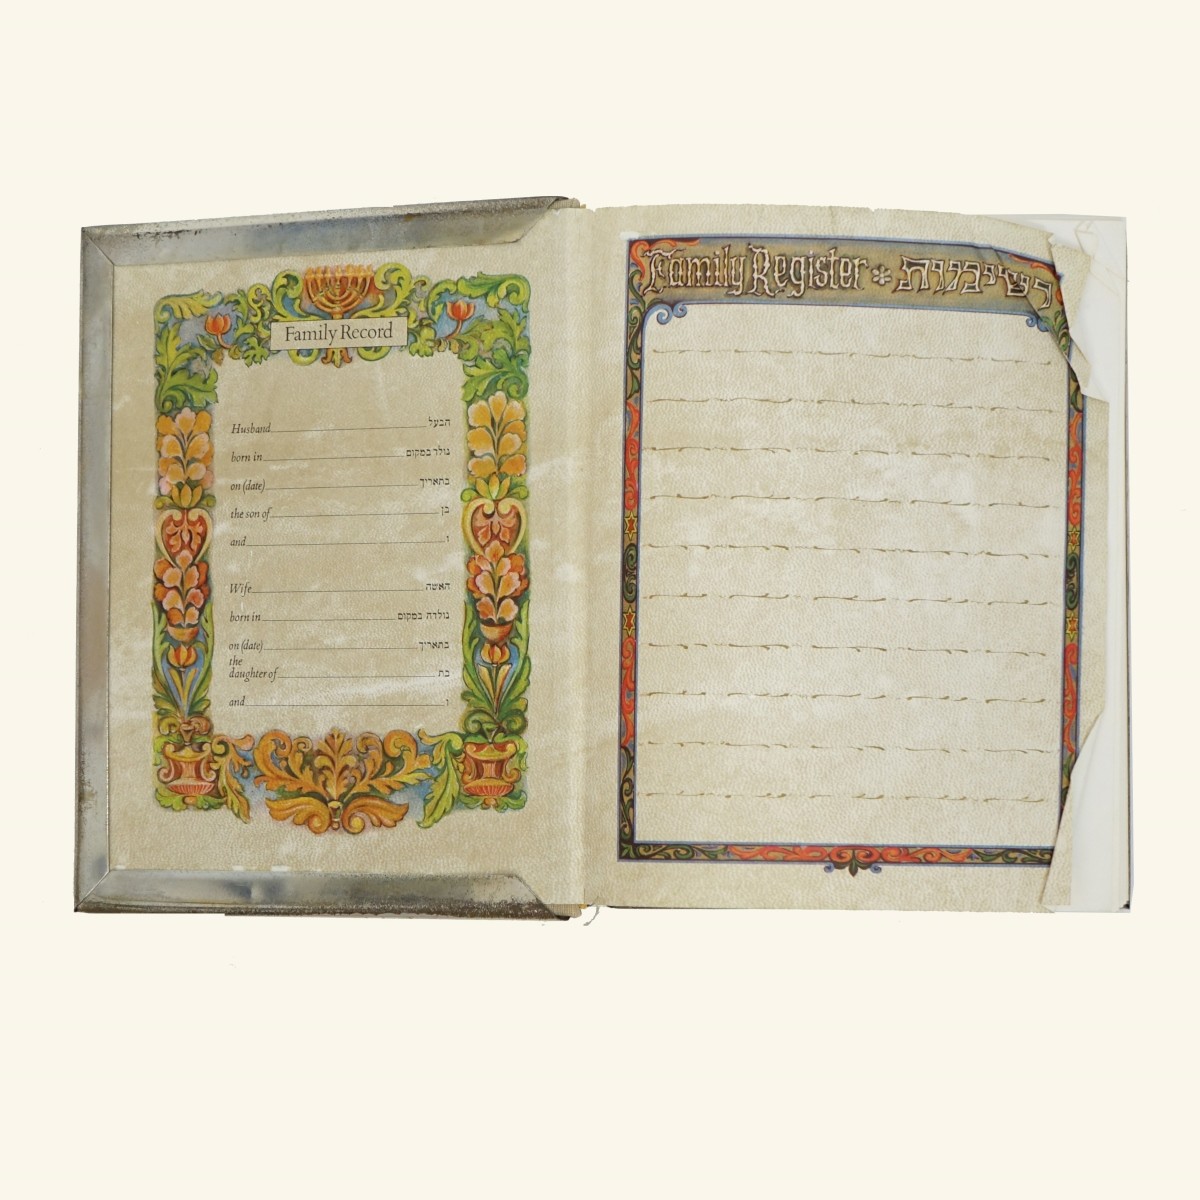 Family Record
Husband הבעל
born in נולד במקום
on (date) בתאריך
the son of בן
and ו
Wife האשה
born in נולדה במקום
on (date) בתאריך
the
daughter of בת
and ו
Family Register * רשיכמות